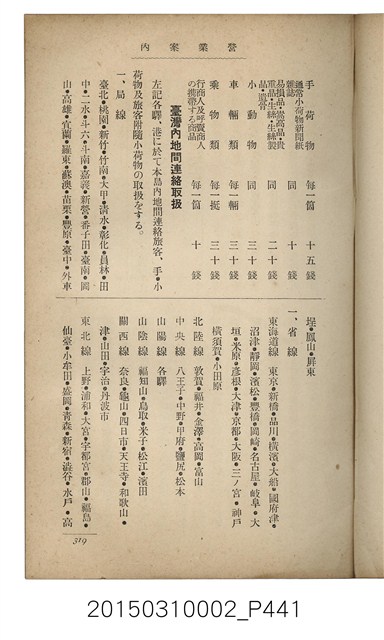 營業案內
手荷物 每一箇 十五錢
通常小荷物新聞紙雜誌 同 十錢
易損品・貴高品・貴重品・生絲・生絲製品・遺骨 同 二十錢
小動物 同 三十錢
車輛類 每一輛 三十錢
乘物類 每一挺 三十錢
行商人及呼賣商人の攜帶する商品 每一箇 十錢
臺灣內地間連絡取扱
左記各驛、港に於て本島內地間連絡旅客、手・小
荷物及旅客附隨小荷物の取扱をする。
一、局線
臺北・桃園・新竹・竹南・大甲・淸水・彰化・員林・田
中・二水・斗六・斗南・嘉義・新營・番子田・臺南・岡
山・高雄・宜蘭・羅東・蘇澳・苗栗・豐原・臺中・外車
埕・鳳山・屛東
一、省線
東海道線 東京・新橋・品川・橫濱・大船・國府津・
沼津・靜岡・濱松・豐橋・岡崎・名古屋・岐阜・大
垣・米原・彥根・大津・京都・大阪・三ノ宮・神戶
橫須賀・小田原
北陸線 敦賀・福井・金澤・高岡・富山
中央線 八王子・中野・甲府・鹽尻・松本
山陽線 各驛
山陰線 福知山・鳥取・米子・松江・濱田
關西線 奈良・龜山・四日市・天王寺・和歌山・
津・山田・宇治・丹波市
東北線 上野・浦和・大宮・宇都宮・郡山・福島・
仙臺・小牛田・盛岡・靑森・新宿・澁谷・水戶・高
319
20150310002_P441